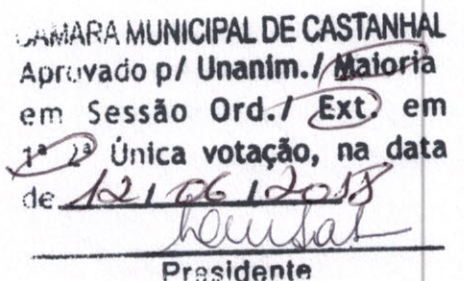 CÂMARA MUNICIPAL DE CASTANHAL
Aprovado p/ Unanim./ Maioria
em Sessão Ord./ Ext. em
1ª 2ª Única votação, na data
de 12/06/2018
Presidente